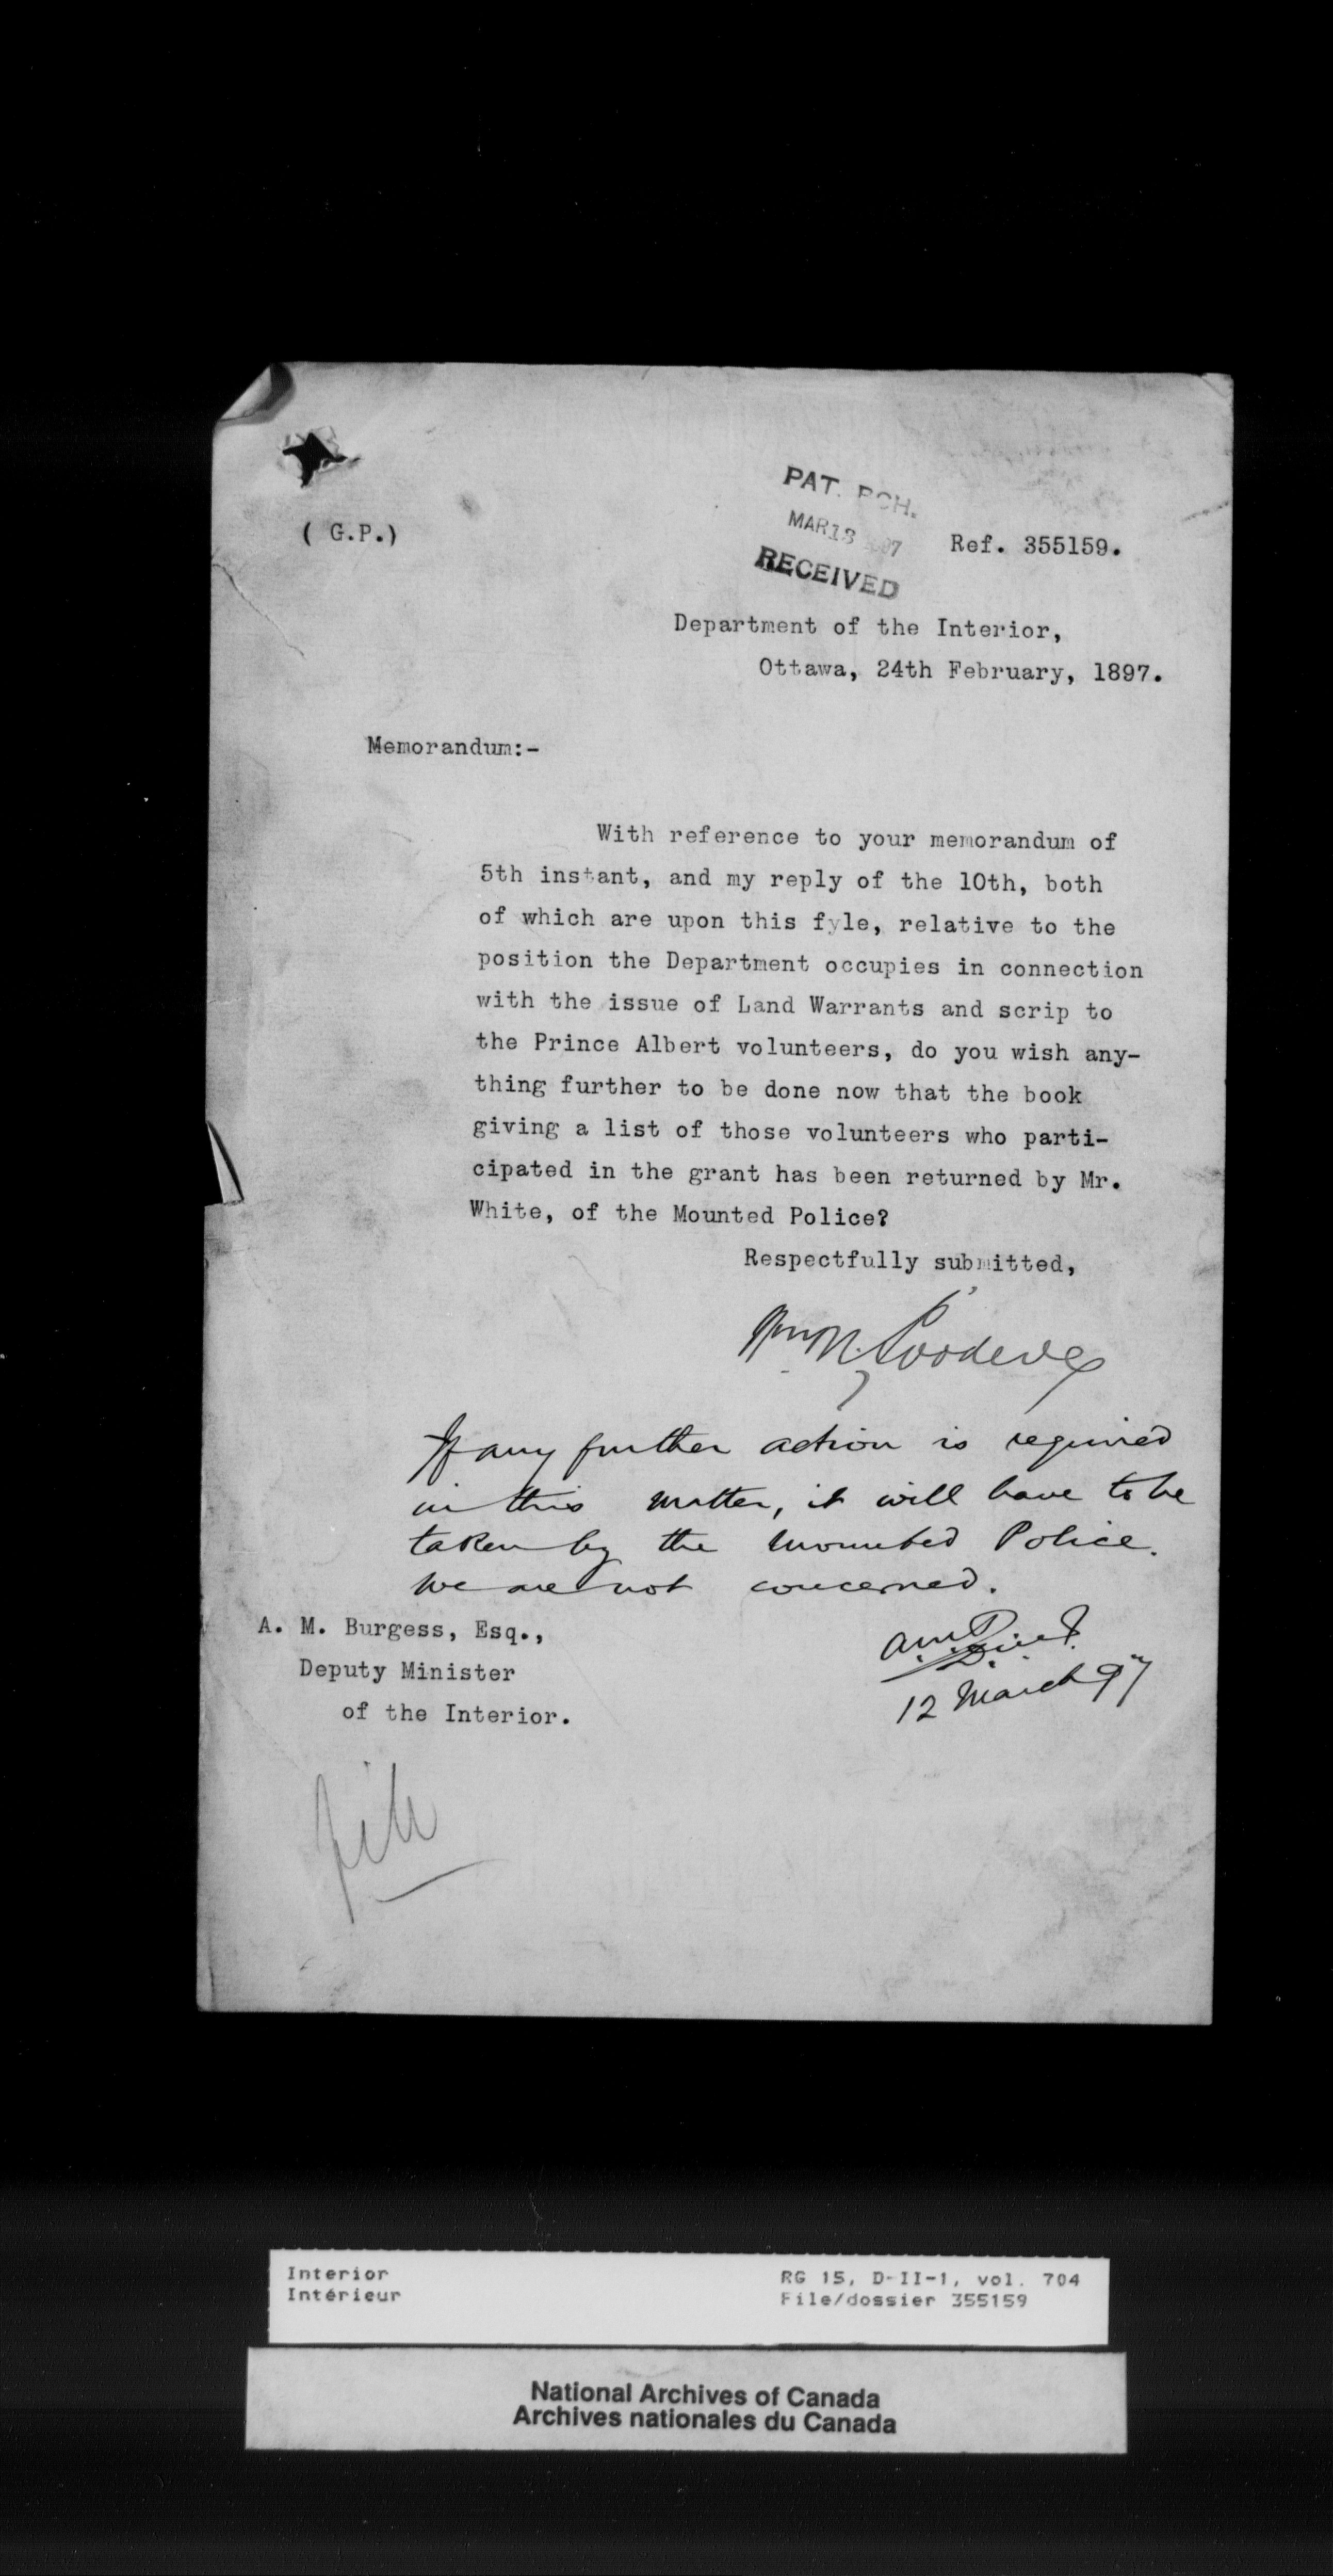 ( G.P.)
PAT. BCH.
MAR 13 1897
RECEIVED
Ref. 355159.
Department of the Interior,
Ottawa, 24th February, 1897.
Memorandum:-
With reference to your memorandum of
5th instant, and my reply of the 10th, both
of which are upon this fyle, relative to the
position the Department occupies in connection
with the issue of Land Warrants and scrip to
the Prince Albert volunteers, do you wish any-
thing further to be done now that the book
giving a list of those volunteers who parti-
cipated in the grant has been returned by Mr.
White, of the Mounted Police?
Respectfully submitted,
If any further action is required
in this matter, it will have to be
taken by the Mounted Police.
We are not concerned.
A. M. Burgess, Esq.,
Deputy Minister
of the Interior.
12 March 97
file
Interior
Intérieur
RG 15, D-II-1, vol. 704
File/dossier 355159
National Archives of Canada
Archives nationales du Canada